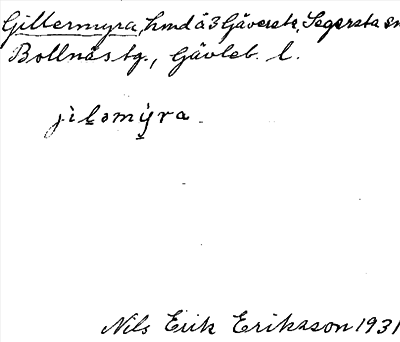 Gillermyra, hmd å 3 Gäversta, Segersta sn
Bollnäs tg., Gävleb. l.
jìləmy̬ra
Nils Erik Eriksson 1931